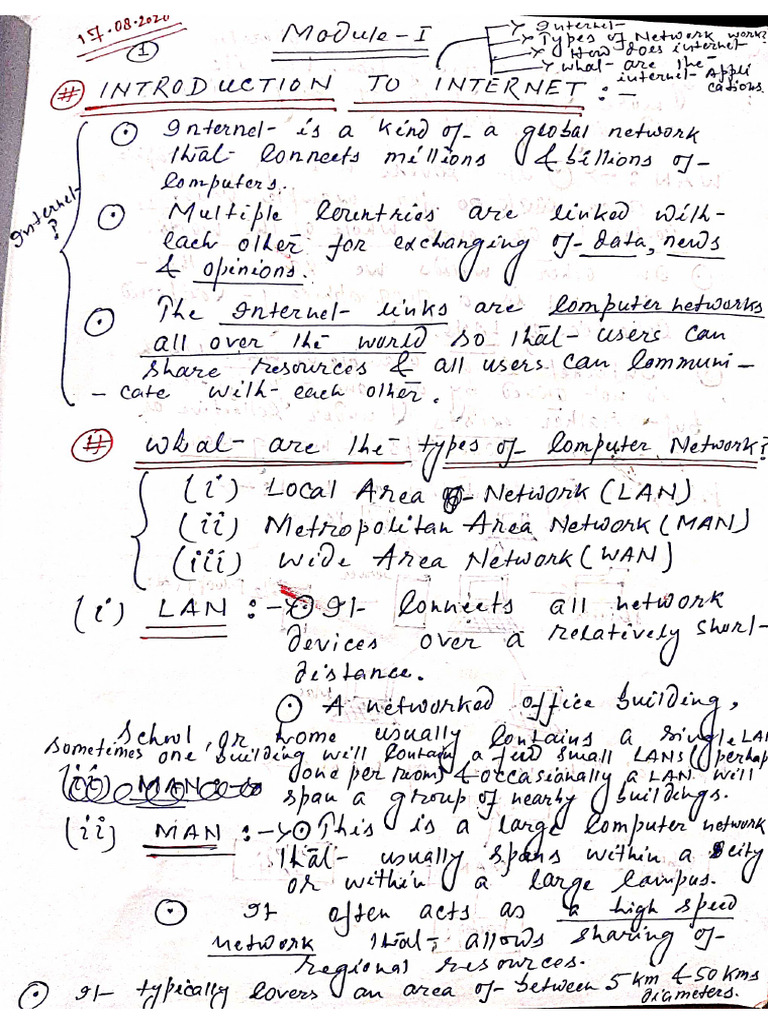 17.08.2020
1
Module-I
Internet
Types of Network work?
How does internet
what are the
internet Appli
cations.
# INTRODUCTION TO INTERNET :-
Internet?
Internet is a kind of a global network
that connects millions & billions of
computers.
Multiple countries are linked with
each other for exchanging of data, news
& opinions.
The Internet links are computer networks
all over the world so that users can
share resources & all users can communi-
-cate with each other.
# What are the types of Computer Network?
(i) Local Area Network (LAN)
(ii) Metropolitan Area Network (MAN)
(iii) Wide Area Network (WAN)
(i) LAN :- It connects all network
devices over a relatively short
distance.
A networked office building,
school, or home usually contains a single LAN
sometimes one building will contain a few small LANs (perhap
(ii) MAN :-
one per room) & occasionally a LAN will
span a group of nearby buildings.
(ii) MAN :- This is a large computer network
that usually spans within a city
or within a large campus.
It often acts as a high speed
network that allows sharing of
regional resources.
It typically covers an area of between 5 km & 50 kms
diameters.